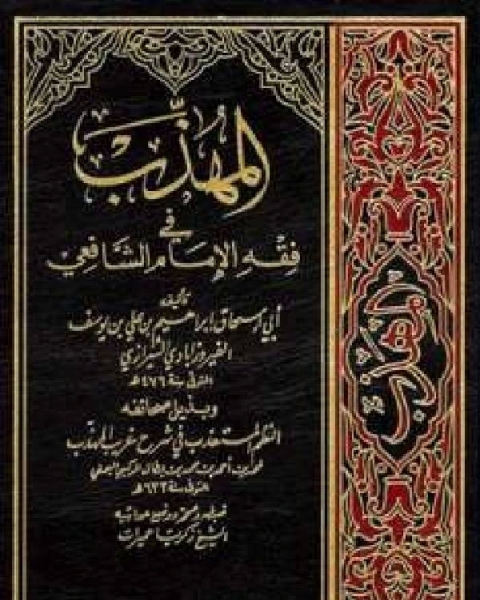 المهذب
في
فقه الإمام الشافعي
تأليف
أبي إسحاق إبراهيم بن علي بن يوسف
الفيروزابادي الشيرازي
المتوفى سنة ٤٧٦ هـ
وبذيل صحائفه
النظم المستعذب في شرح غريب المهذب
محمد بن أحمد بن محمد بن بطال الركبي اليمني
المتوفى سنة ٦٣٣ هـ
ضبطه وصححه ووضع حواشيه
الشيخ زكريا عميرات
المهذب